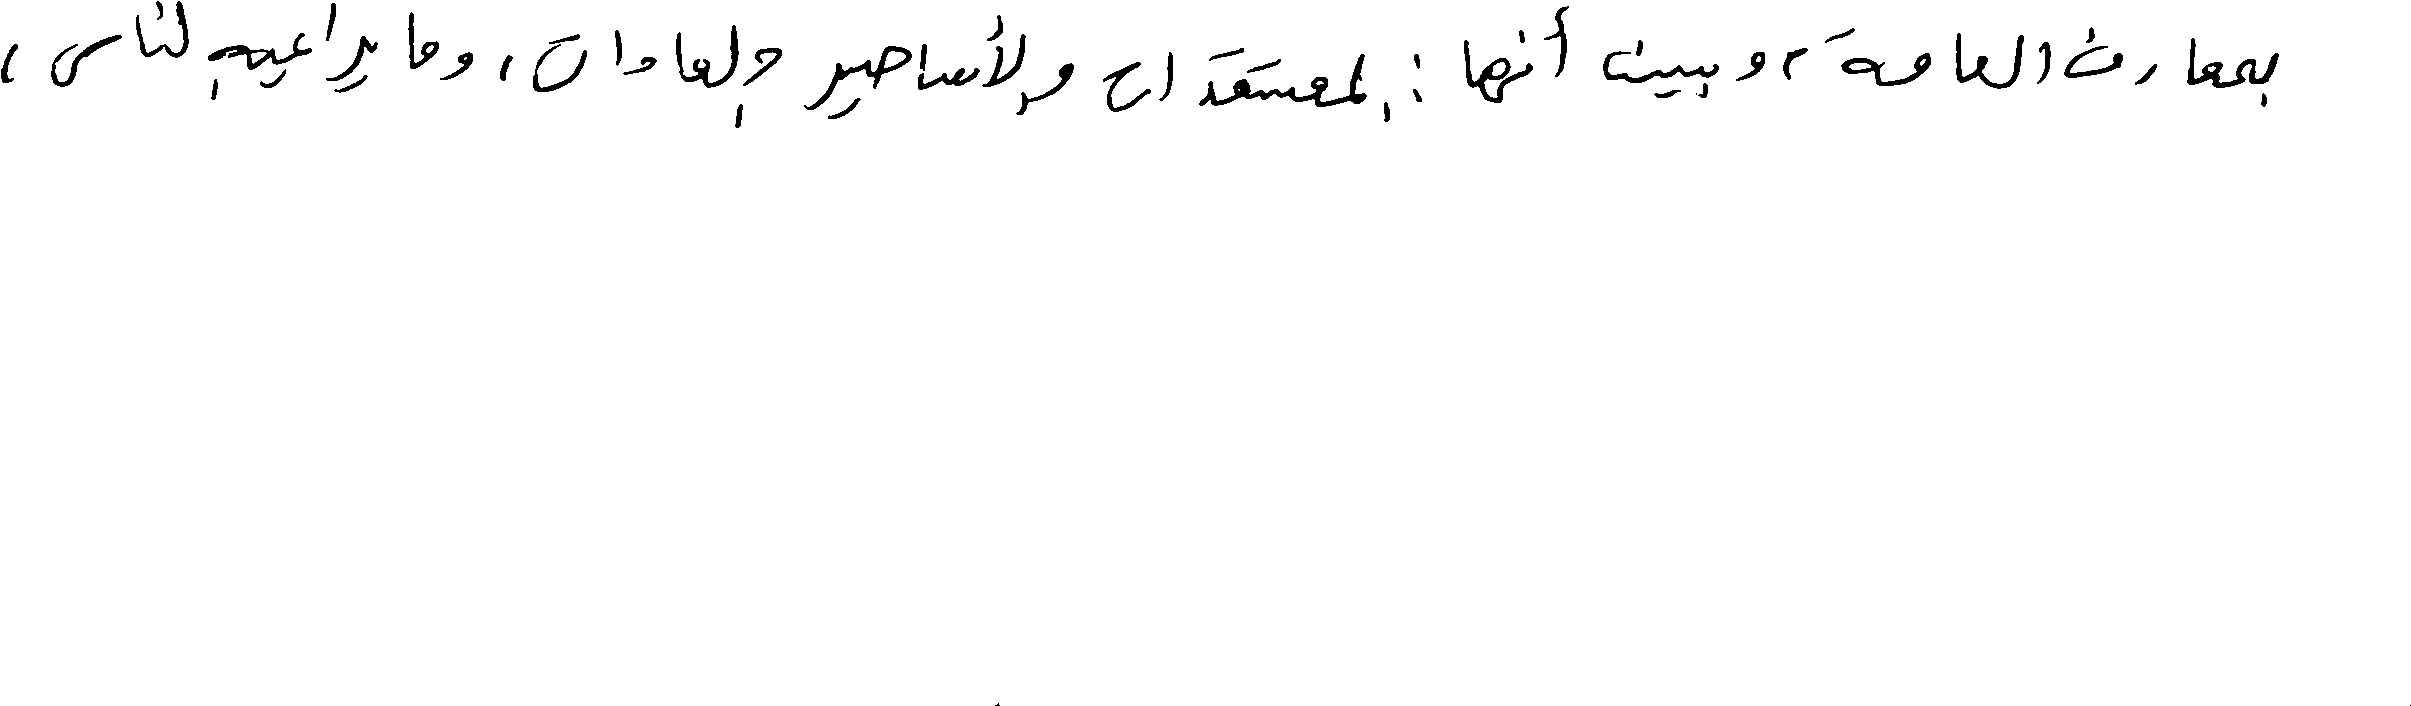 بمعارف العامة، وبينت أنها: المعتقدات والأساطير والعادات، وما يراعيه الناس،